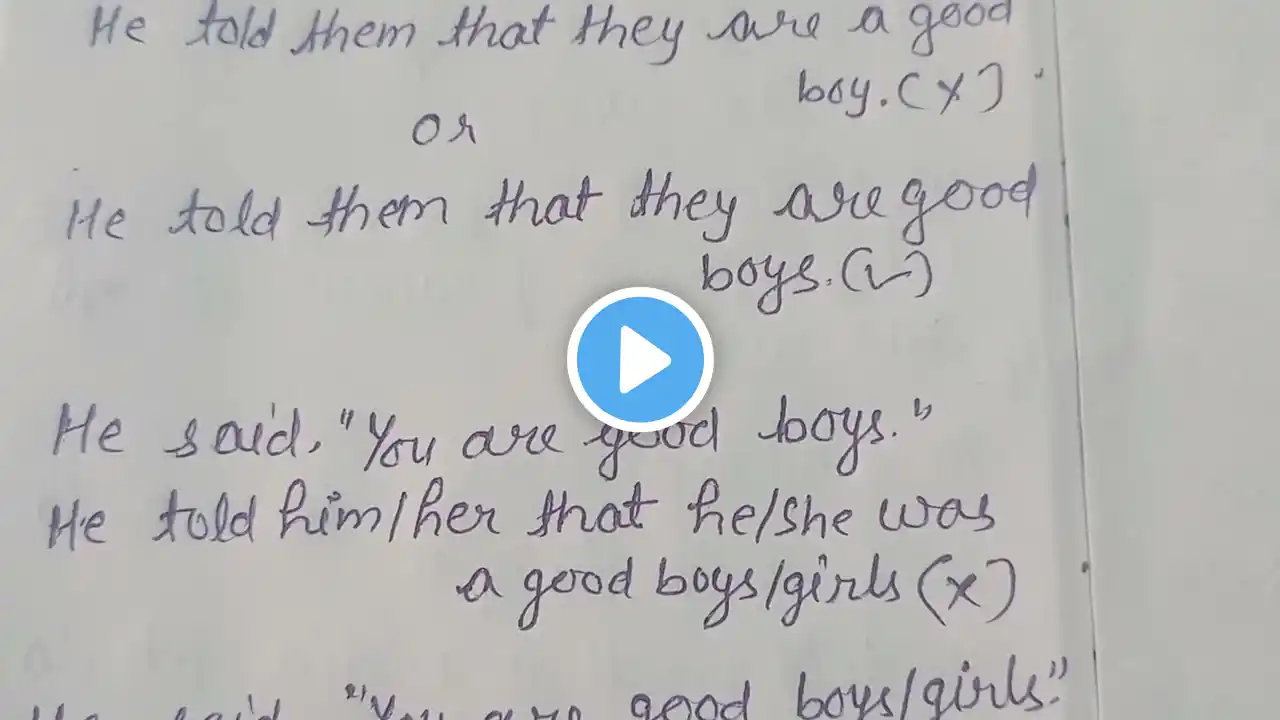 He told them that they are a good
boy. (X)
or
He told them that they are good
boys. (✓)
He said, "You are good boys."
He told him/her that he/she was
a good boys/girls (x)
He said, "You are good boys/girls."